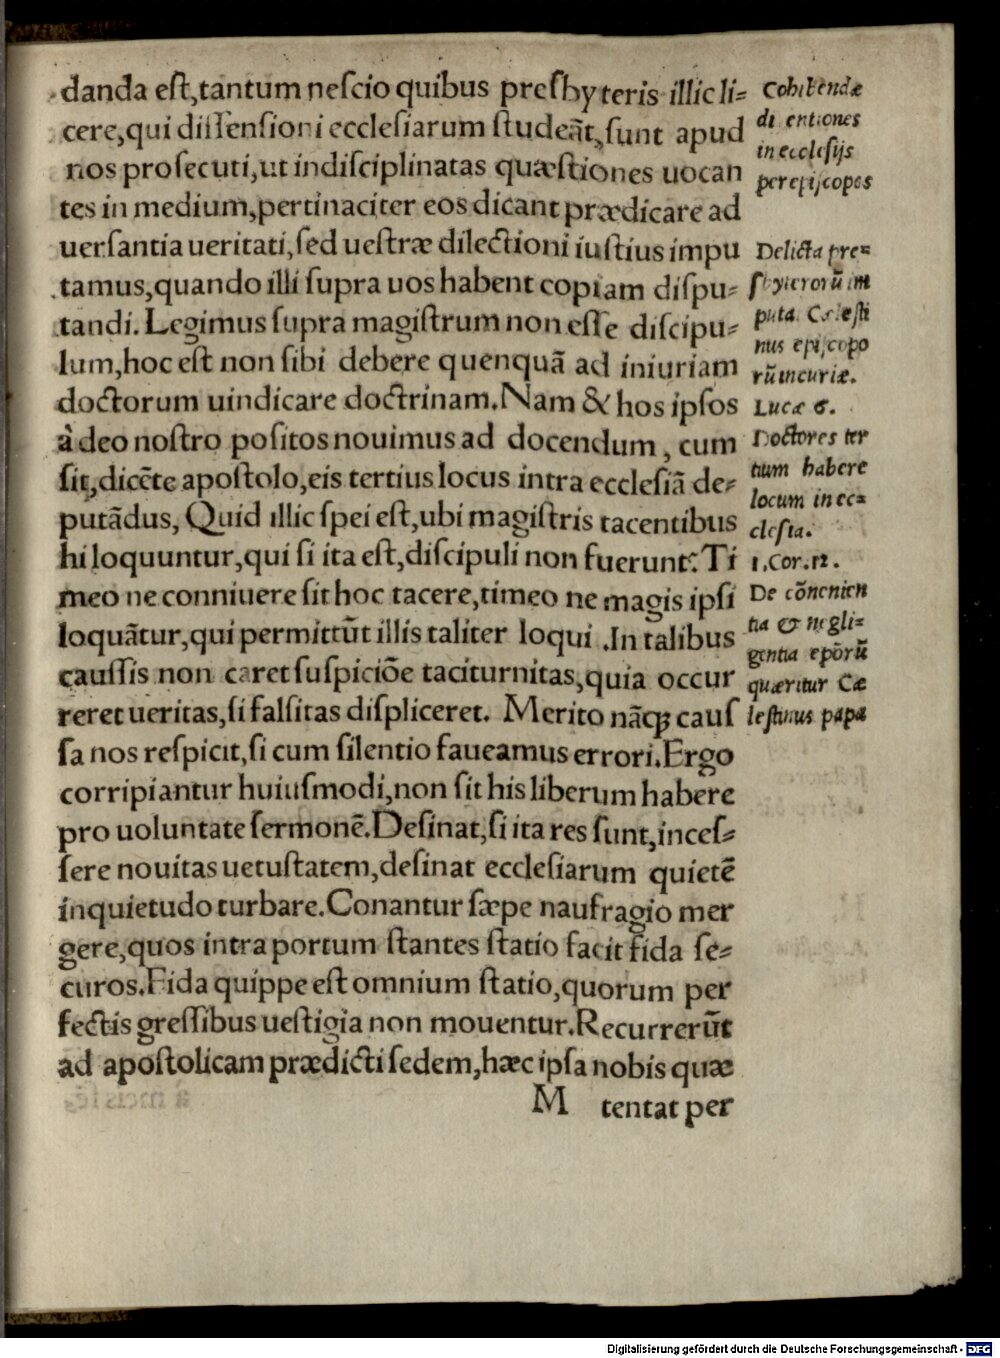 danda eſt,tantum neſcio quibus preſbyteris illic li⸗
cere,qui diſſenſioni eccleſiarum ſtudeãt,ſunt apud
nos proſecuti,ut indiſciplinatas quæſtiones uocan
tes in medium,pertinaciter eos dicant prædicare ad
uerſantia ueritati,ſed ueſtræ dilectioni iuſtius impu
tamus,quando illi ſupra uos habent copiam diſpu⸗
tandi. Legimus ſupra magiſtrum non eſſe diſcipu⸗
lum,hoc eſt non ſibi debere quenquã ad iniuriam
doctorum uindicare doctrinam.Nam & hos ipſos
à deo noſtro poſitos nouimus ad docendum, cum
ſit,dicẽte apoſtolo,eis tertius locus intra eccleſiã de⸗
putãdus, Quid illic ſpei eſt,ubi magiſtris tacentibus
hi loquuntur,qui ſi ita eſt,diſcipuli non fuerunt: Ti
meo ne conniuere ſit hoc tacere,timeo ne magis ipſi
loquãtur,qui permittũt illis taliter loqui .In talibus
cauſſis non caret ſuſpiciõe taciturnitas,quia occur
reret ueritas,ſi falſitas diſpliceret. Merito nãqꝫ cauſ
ſa nos reſpicit,ſi cum ſilentio faueamus errori.Ergo
corripiantur huiuſmodi,non ſit his liberum habere
pro uoluntate ſermonẽ.Deſinat,ſi ita res ſunt,inceſ⸗
ſere nouitas uetuſtatem,deſinat eccleſiarum quietẽ
inquietudo turbare.Conantur ſæpe naufragio mer
gere,quos intra portum ſtantes ſtatio facit fida ſe⸗
curos.Fida quippe eſt omnium ſtatio,quorum per
fectis greſſibus ueſtigia non mouentur.Recurrerũt
ad apoſtolicam prædicti ſedem,hæc ipſa nobis quæ
M tentat per
Cohibendæ
diſſentiones
in eccleſijs
per epiſcopos
Delicta pre⸗
ſbyterorũ im
putat Cæleſti
nus epiſcopo
rũ incuriæ.
Lucæ 6.
Doctores ter
tium habere
locum in ec⸗
cleſia.
1.Cor.12.
De cõnenien
tia & negli⸗
gentia epõrũ
quæritur Cæ
leſtinus papa
Digitalisierung gefördert durch die Deutsche Forschungsgemeinschaft - DFG